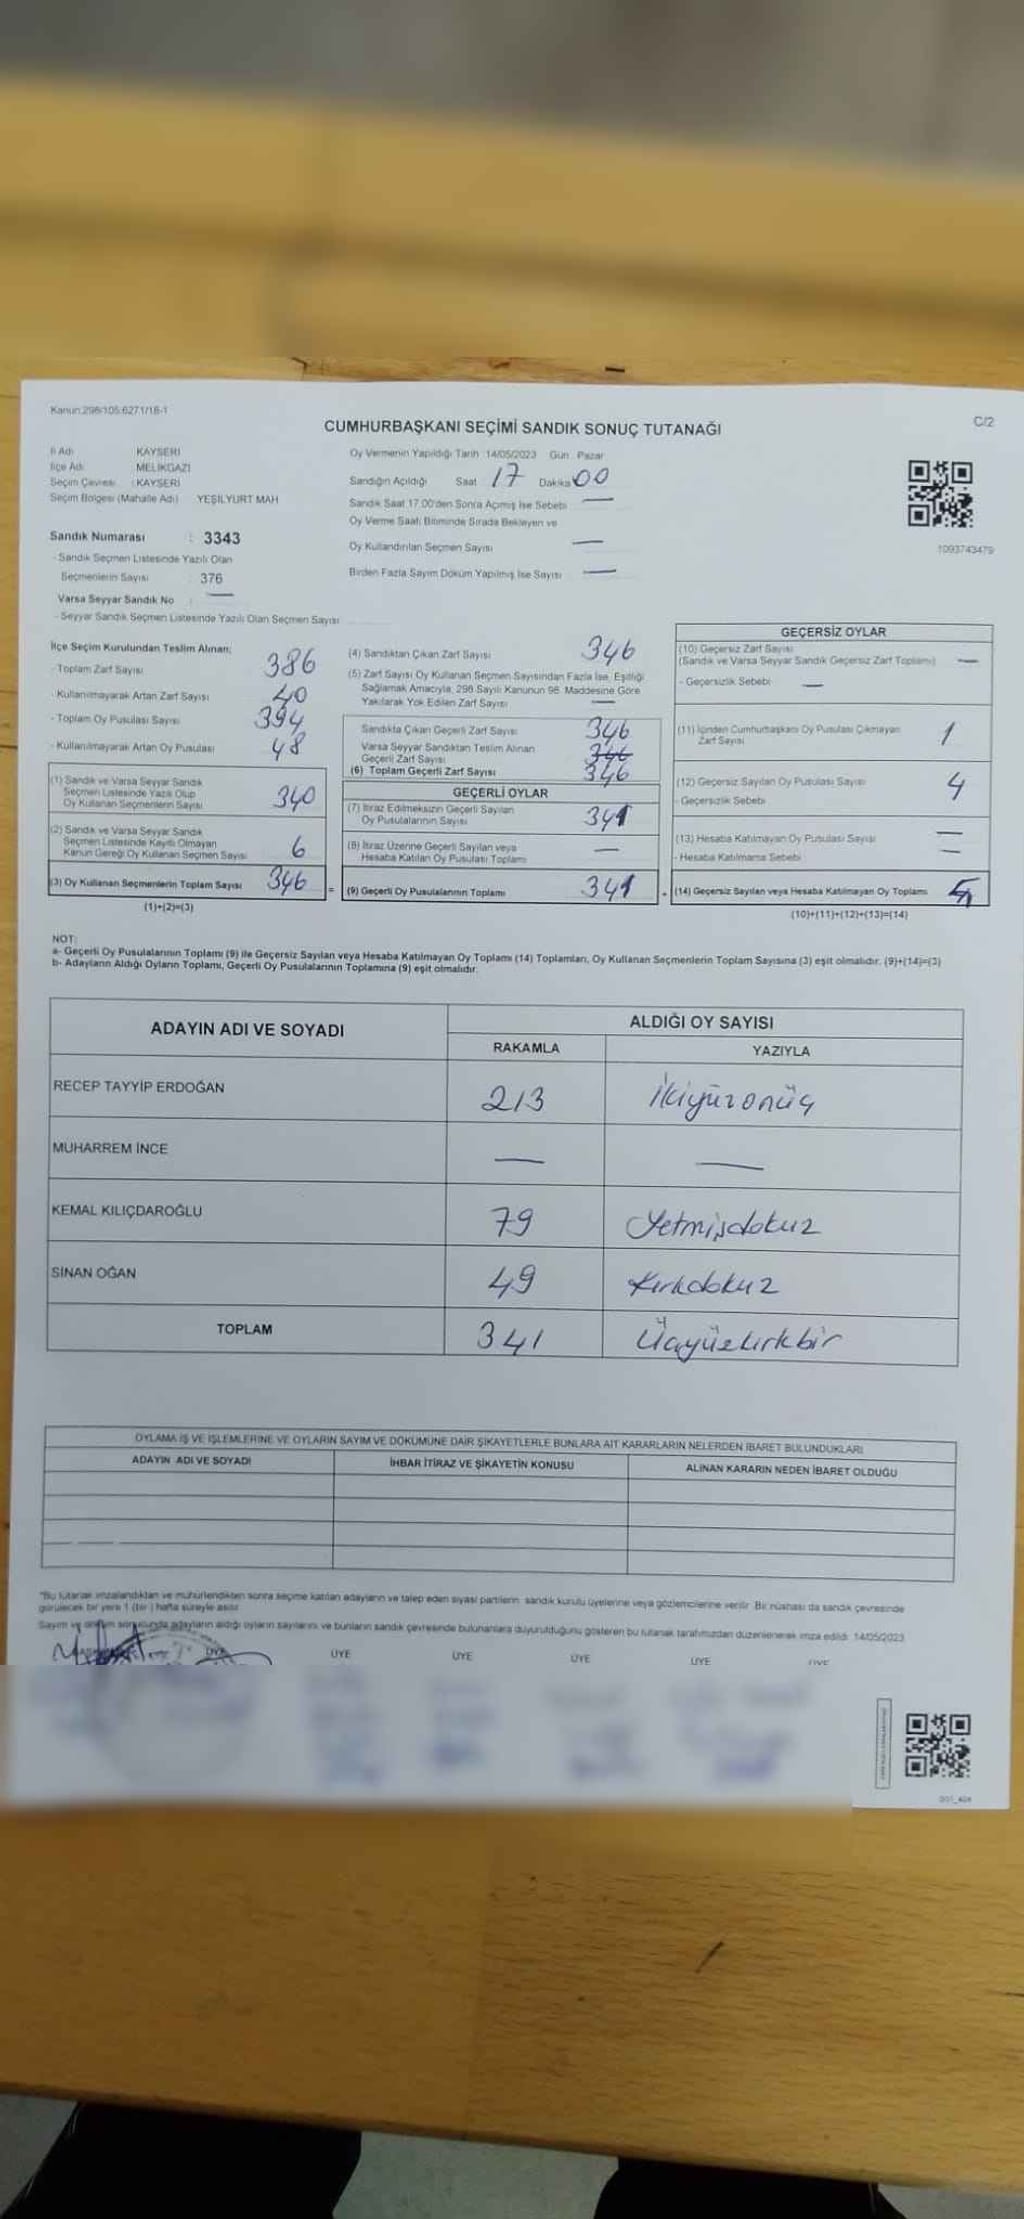 Kanun:298/105:6271/18-1
C/2
CUMHURBAŞKANI SEÇİMİ SANDIK SONUÇ TUTANAĞI
İl Adı KAYSERİ
İlçe Adı MELİKGAZİ
Seçim Çevresi : KAYSERİ
Seçim Bölgesi (Mahalle Adı) YEŞİLYURT MAH
Sandık Numarası : 3343
- Sandık Seçmen Listesinde Yazılı Olan
Seçmenlerin Sayısı 376
Varsa Seyyar Sandık No : —
- Seyyar Sandık Seçmen Listesinde Yazılı Olan Seçmen Sayısı
Oy Vermenin Yapıldığı Tarih 14/05/2023 Gün : Pazar
Sandığın Açıldığı Saat 17 Dakika 00
Sandık Saat 17.00'den Sonra Açımış İse Sebebi —
Oy Verme Saati Bitiminde Sırada Bekleyen ve
Oy Kullandırılan Seçmen Sayısı —
Birden Fazla Sayım Döküm Yapılmış İse Sayısı —
1093743479
İlçe Seçim Kurulundan Teslim Alınan;
- Toplam Zarf Sayısı 386
- Kullanılmayarak Artan Zarf Sayısı 40
- Toplam Oy Pusulası Sayısı 394
- Kullanılmayarak Artan Oy Pusulası 48
(1) Sandık ve Varsa Seyyar Sandık
Seçmen Listesinde Yazılı Olup
Oy Kullanan Seçmenlerin Sayısı 340
(2) Sandık ve Varsa Seyyar Sandık
Seçmen Listesinde Kayıtlı Olmayan
Kanun Gereği Oy Kullanan Seçmen Sayısı 6
(3) Oy Kullanan Seçmenlerin Toplam Sayısı 346
(1)+(2)=(3)
(4) Sandıktan Çıkan Zarf Sayısı 346
(5) Zarf Sayısı Oy Kullanan Seçmen Sayısından Fazla İse, Eşitliği
Sağlamak Amacıyla, 298 Sayılı Kanunun 98. Maddesine Göre
Yakılarak Yok Edilen Zarf Sayısı —
Sandıkta Çıkan Geçerli Zarf Sayısı 346
Varsa Seyyar Sandıktan Teslim Alınan
Geçerli Zarf Sayısı 346
(6) Toplam Geçerli Zarf Sayısı 346
GEÇERLİ OYLAR
(7) İtiraz Edilmeksizin Geçerli Sayılan
Oy Pusulalarının Sayısı 341
(8) İtiraz Üzerine Geçerli Sayılan veya
Hesaba Katılan Oy Pusulası Toplamı —
= (9) Geçerli Oy Pusulalarının Toplamı 341
GEÇERSİZ OYLAR
(10) Geçersiz Zarf Sayısı
(Sandık ve Varsa Seyyar Sandık Geçersiz Zarf Toplamı) —
- Geçersizlik Sebebi —
(11) İçinden Cumhurbaşkanı Oy Pusulası Çıkmayan
Zarf Sayısı 1
(12) Geçersiz Sayılan Oy Pusulası Sayısı 4
- Geçersizlik Sebebi
(13) Hesaba Katılmayan Oy Pusulası Sayısı —
- Hesaba Katılmama Sebebi —
+ (14) Geçersiz Sayılan veya Hesaba Katılmayan Oy Toplamı 5
(10)+(11)+(12)+(13)=(14)
NOT:
a- Geçerli Oy Pusulalarının Toplamı (9) ile Geçersiz Sayılan veya Hesaba Katılmayan Oy Toplamı (14) Toplamları, Oy Kullanan Seçmenlerin Toplam Sayısına (3) eşit olmalıdır. (9)+(14)=(3)
b- Adayların Aldığı Oyların Toplamı, Geçerli Oy Pusulalarının Toplamına (9) eşit olmalıdır.
ADAYIN ADI VE SOYADI
ALDIĞI OY SAYISI
RAKAMLA YAZIYLA
RECEP TAYYİP ERDOĞAN 213 İkiyüzonüç
MUHARREM İNCE — —
KEMAL KILIÇDAROĞLU 79 Yetmişdokuz
SİNAN OĞAN 49 Kırkdokuz
TOPLAM 341 Üçyüzkırkbir
OYLAMA İŞ VE İŞLEMLERİNE VE OYLARIN SAYIM VE DÖKÜMÜNE DAİR ŞİKAYETLERLE BUNLARA AİT KARARLARIN NELERDEN İBARET BULUNDUKLARI
ADAYIN ADI VE SOYADI İHBAR İTİRAZ VE ŞİKAYETİN KONUSU ALINAN KARARIN NEDEN İBARET OLDUĞU
"Bu tutanak imzalandıktan ve mühürlendikten sonra seçime katılan adayların ve talep eden siyasi partilerin sandık kurulu üyelerine veya gözlemcilerine verilir. Bir nüshası da sandık çevresinde
görülecek bir yere 1 (bir) hafta süreyle asılır.
Sayım ve döküm sonucunda adayların aldığı oyların sayılarını ve bunların sandık çevresinde bulunanlara duyurulduğunu gösteren bu tutanak tarafımızdan düzenlenerek imza edildi. 14/05/2023
ÜYE ÜYE ÜYE ÜYE ÜYE ÜYE